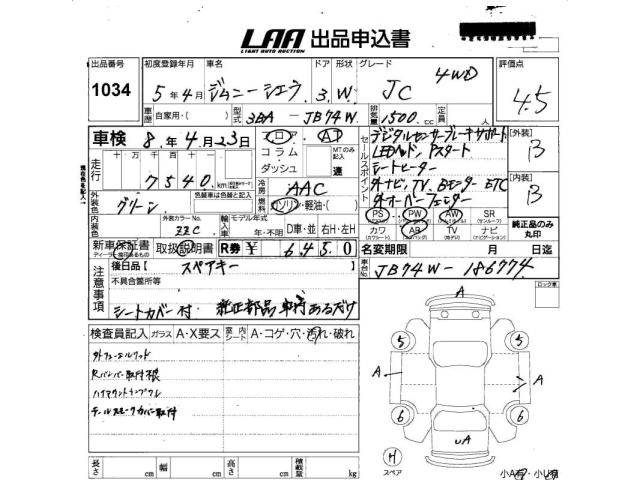 LAA 出品申込書
LIGHT AUTO AUCTION
出品番号 1034
初度登録年月 5年4月
車名 ジムニーシエラ
ドア 形状 3.W.
グレード JC 4WD
評価点 4.5
車歴 自家用・( )
型式 3BA - JB74W
排気量 1500.cc
定員 人
車検 8.年4月23日
フロア コラム ダッシュ
AT
MTのみ記入 速
セールスポイント
デジタルセンサーブレーキサポート
LEDヘッド, Pスタート
シートヒーター
外ナビ, TV, Bモニター ETC
外装 B
内装 B
走行 十 万 千 百 十 一
7540 km
冷房 AAC
燃料 ガソリン・軽油・( )
外装色 グリーン
色替車は色替と記入
内装色
外装カラーNo. ZZC
輸入車 モデル年式 年・不明 D車・並 右H・左H
PS (パワステ) PW (パワーウィンドウ) AW (アルミホイール) SR (サンルーフ)
カワ (カワシート) AB (エアバッグ) TV (テレビ) ナビ (ナビゲーション)
純正品のみ丸印
新車保証書 取扱説明書 R券 ¥ 6450
名変期限 月 日迄
車台No. JB74W - 186774
注意事項
後日品 [ スペアキー ]
不具合箇所等
シートカバー付. 純正部品車内あるだけ
検査員記入 ガラス A・X要ス 室内シート A・コゲ・穴・汚れ・破れ
Rバンパー取付不良
テールスモークカバー取付
ロック車
A
5 5
A A
6 6
UA
H
スペア
長さ cm 幅 cm 高さ cm 積載量 kg